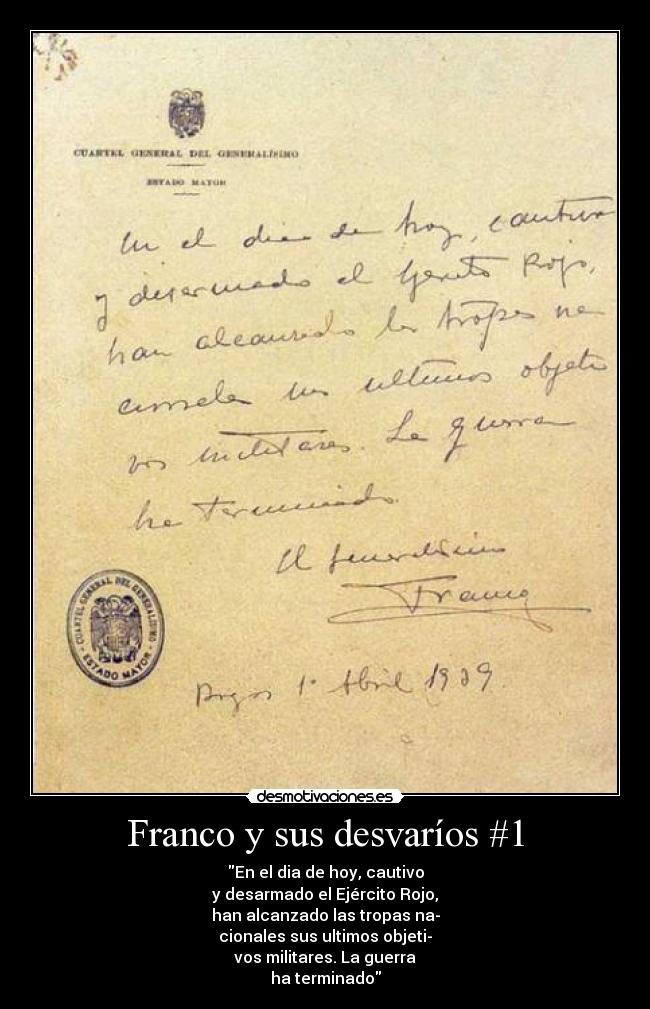 CUARTEL GENERAL DEL GENERALÍSIMO
ESTADO MAYOR
En el dia de hoy, cautivo
y desarmado el Ejercito Rojo,
han alcanzado las tropas na-
cionales sus ultimos objeti-
vos militares. La guerra
ha terminado.
El Generalísimo
Franco
Burgos 1º Abril 1939.
CUARTEL GENERAL DEL GENERALISIMO
- ESTADO MAYOR -
desmotivaciones.es
Franco y sus desvaríos #1
"En el dia de hoy, cautivo
y desarmado el Ejército Rojo,
han alcanzado las tropas na-
cionales sus ultimos objeti-
vos militares. La guerra
ha terminado"